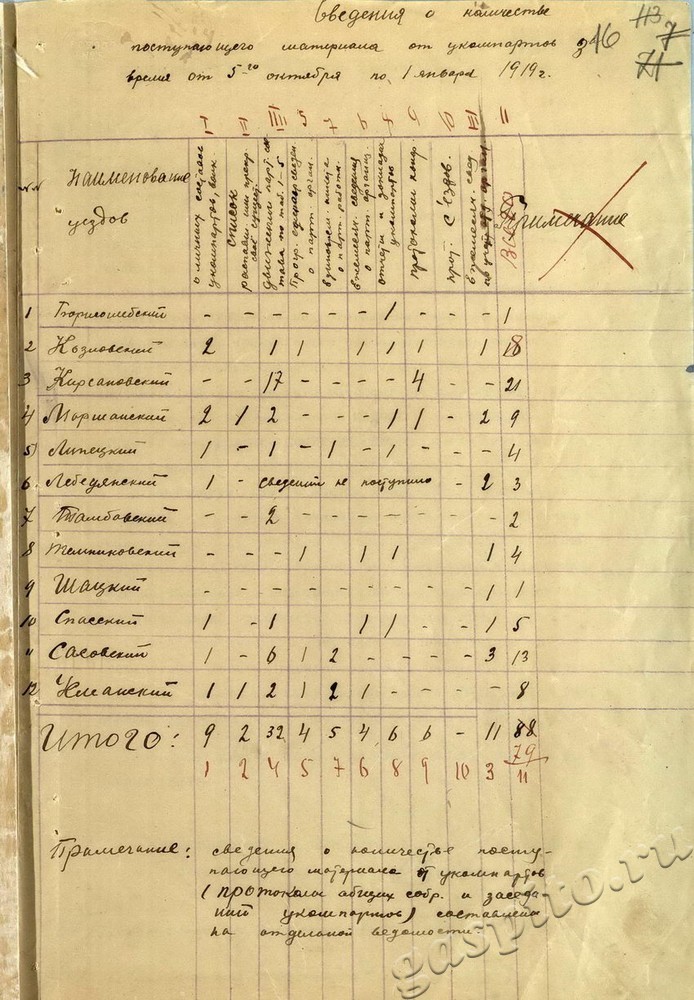 Сведения о количестве
поступающего материала от укомпартов за
время от 5-го октября по 1 января 1919 г.
113
46
7
71
I II III 5 7 6 8 9 10 11
№№ Наименование уездов
о личных составе укомпартов, волк.
список
движении парт.
о парт. орган.
о парт. работн.
ежемесячн. сведения о парт. организ.
отчеты и доклады укомпартов
протоколы конф.
прот. съездов.
Всего
Примечание
1 Борисоглебский - - - - - - 1 - - - 1
2 Козловский 2 1 1 1 1 1 1 8
3 Кирсановский - - 17 - - - - 4 - - 21
4 Моршанский 2 1 2 - - - 1 1 - 2 9
5) Липецкий 1 - 1 - 1 - 1 - - - 4
6. Лебедянский 1 - сведений не поступило - 2 3
7 Тамбовский - - 2 - - - - - - - 2
8 Темниковский - - - 1 1 1 1 4
9 Шацкий - - - - - - - - - 1 1
10 Спасский 1 - 1 1 1 - - 1 5
11 Сасовский 1 - 6 1 2 - - - - 3 13
12 Усманский 1 1 2 1 2 1 - - - - 8
Итого: 9 2 32 4 5 4 6 6 - 11 88
79
1 2 4 5 7 6 8 9 10 3 11
Примечание: сведения о количестве посту-
пающего материала от укомпартов
(протоколы общих собр. и заседа-
ний укомпартов) составлены
на отдельной ведомости.
gaspito.ru